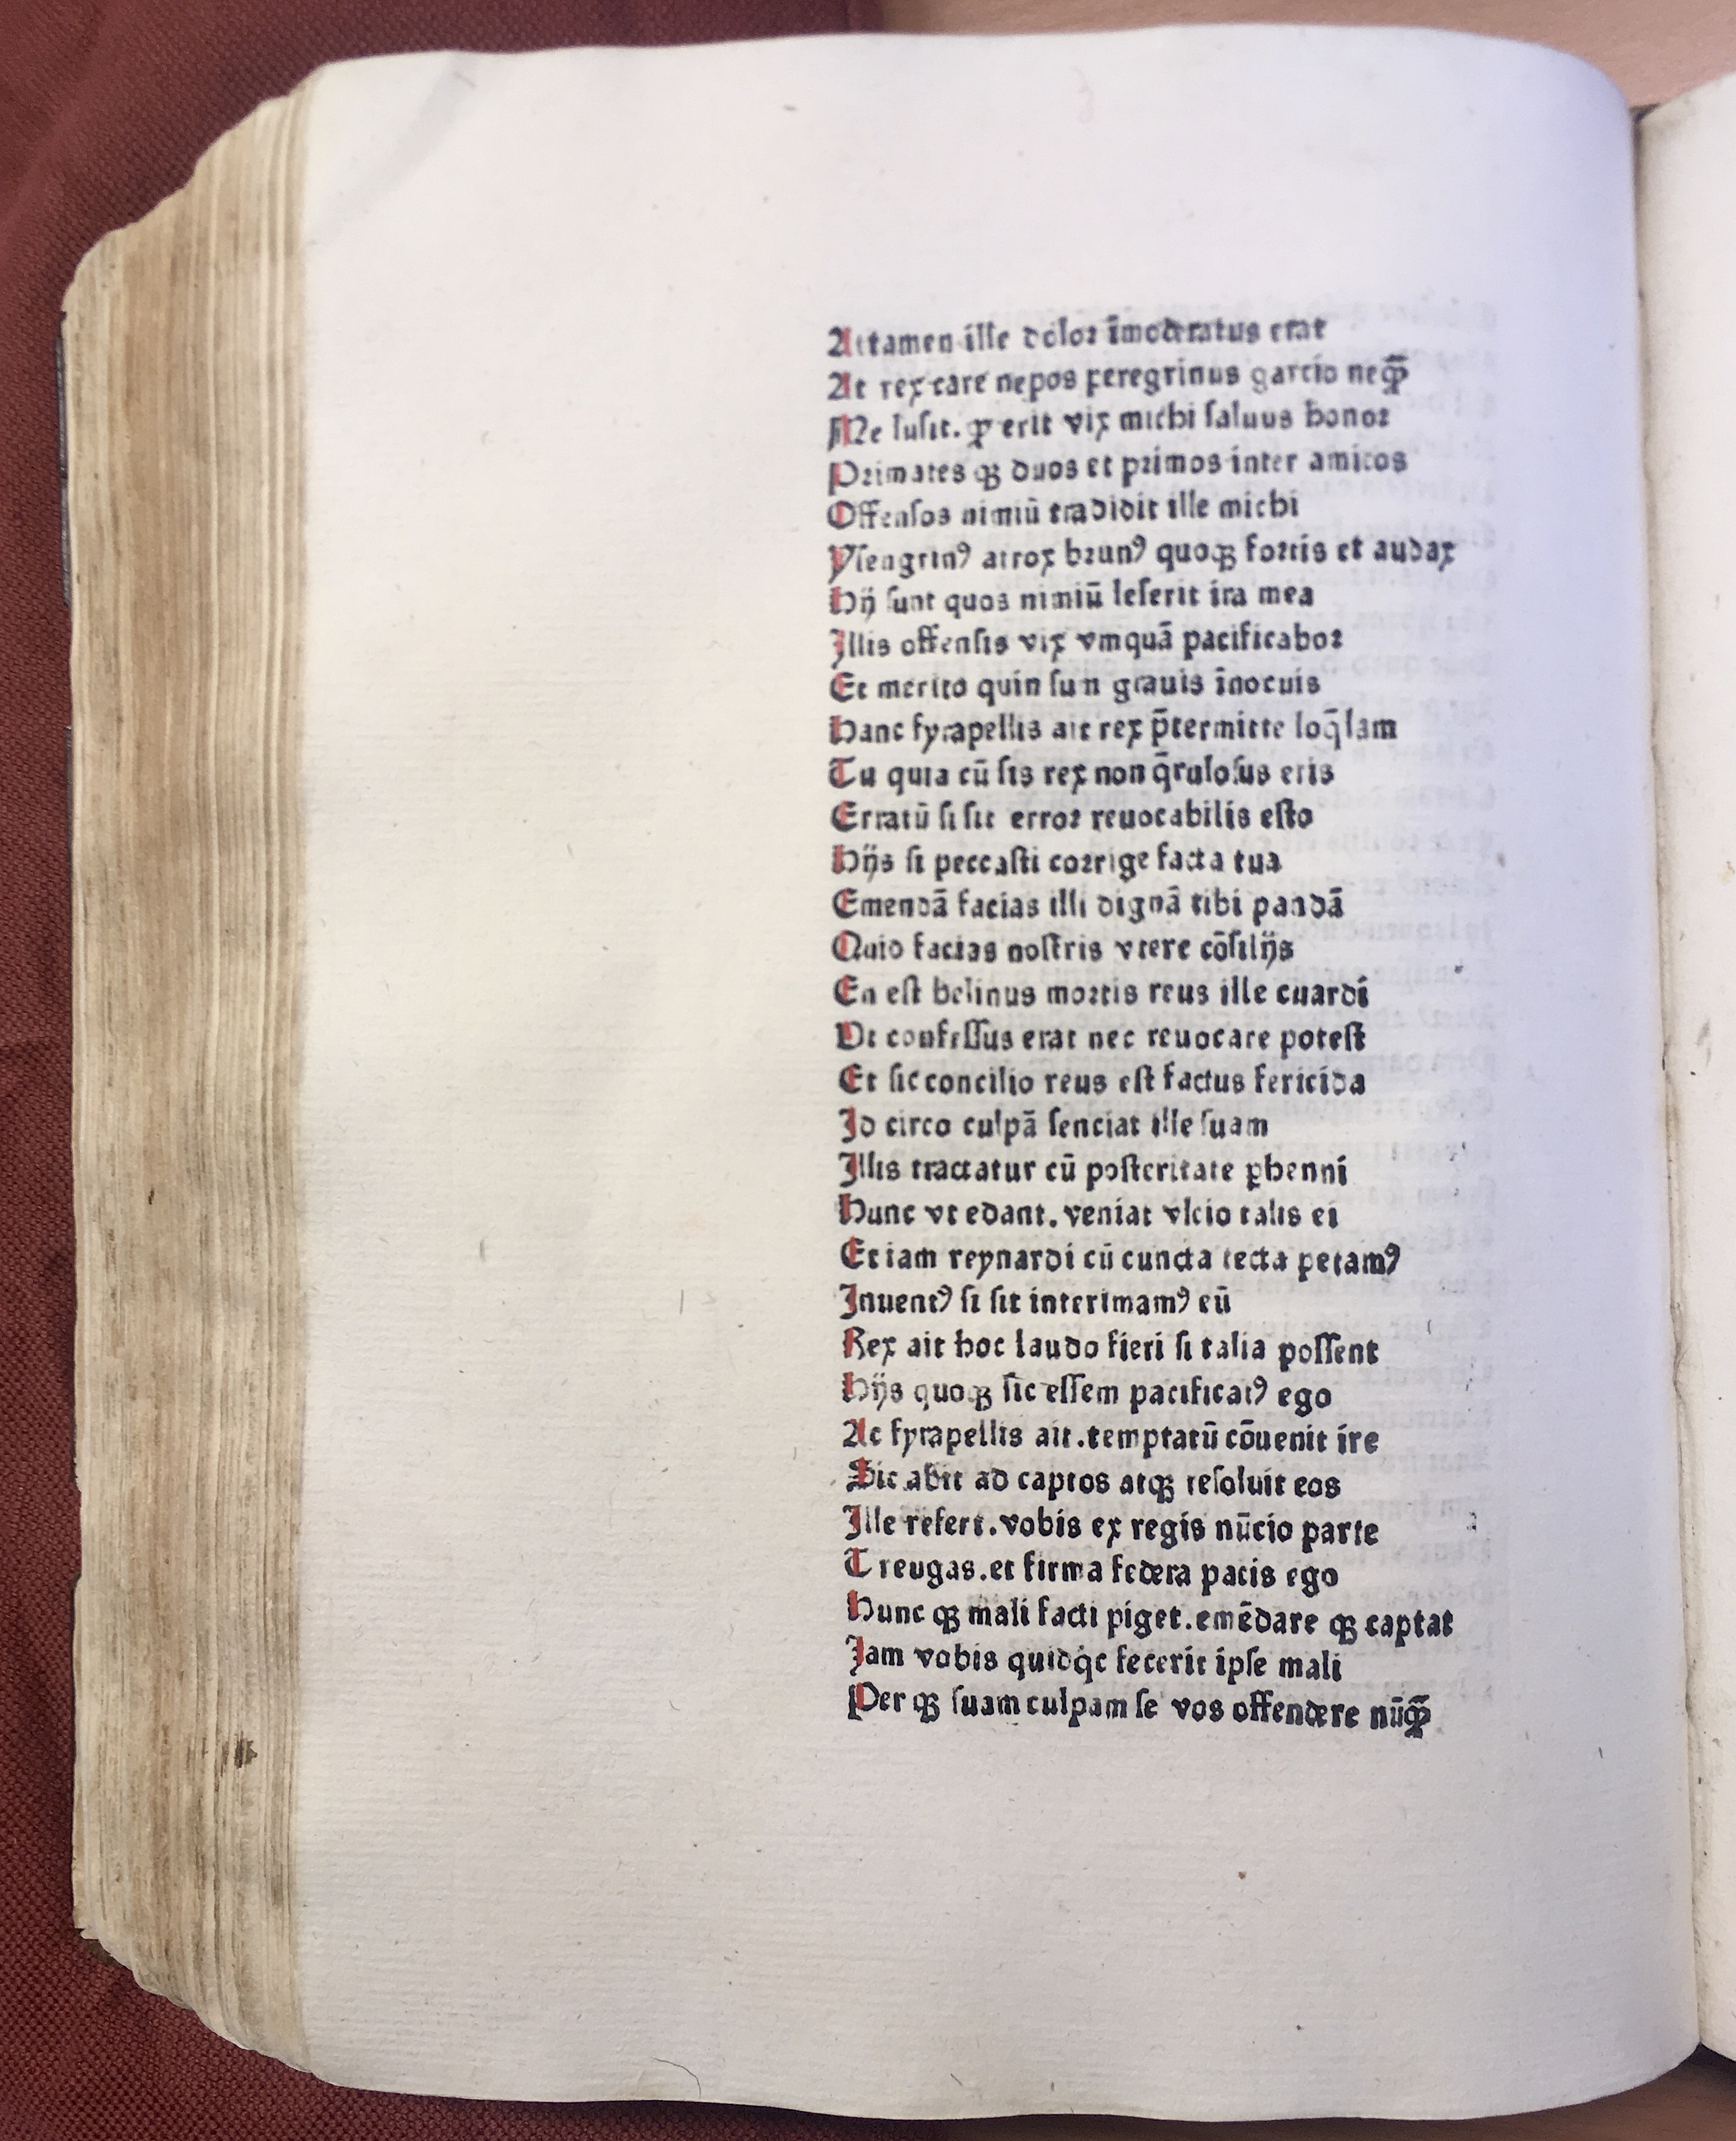 Attamen ille dolor īmoderatus erat
At rex care nepos peregrinus garcio neqꝫ̄
Me lusit. ꝓ erit vix michi saluus honor
Primates qꝫ duos et primos inter amicos
Offensos nimiū tradidit ille michi
Ysengrinꝰ atrox brunꝰ quoqꝫ fortis et audax
Hij sunt quos nimiū leserit ira mea
Illis offensis vix vmquā pacificabor
Et merito quin sun grauis īnocuis
Hanc fyrapellis ait rex p̄termitte loq̄lam
Tu quia cū sis rex non q̄rulosus eris
Erratū si sit error reuocabilis esto
Hijs si peccasti corrige facta tua
Emendā facias illi dignā tibi pandā
Quid facias nostris vtere cōsilijs
En est belinus mortis reus ille cuardi
Vt confessus erat nec reuocare potest
Et sic concilio reus est factus fericida
Id circo culpā senciat ille suam
Illis tractatur cū posteritate ꝑhenni
Hunc vt edant. veniat vlcio talis ei
Et iam reynardi cū cuncta tecta petamꝰ
Inuentꝰ si sit interimamꝰ eū
Rex ait hoc laudo fieri si talia possent
Hijs quoqꝫ sic essem pacificatꝰ ego
Ac fyrapellis ait. temptatū cōuenit ire
Sic abit ad captos atqꝫ resoluit eos
Ille refert. vobis ex regis nūcio parte
Treugas. et firma federa pacis ego
Hunc qꝫ mali facti piget. emēdare qꝫ captat
Iam vobis quidqͥc fecerit ipse mali
Per qꝫ suam culpam se vos offendere nūqꝫ̄